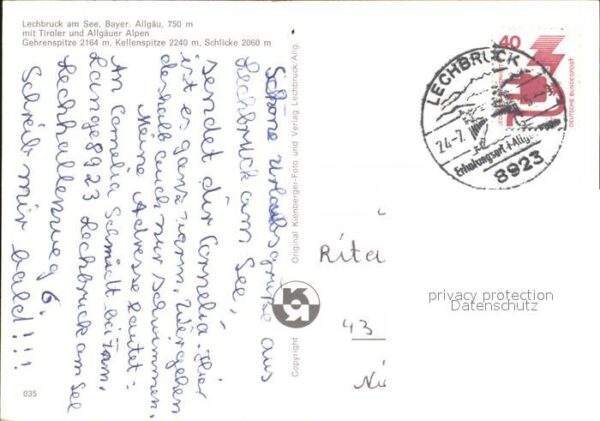 Lechbruck am See, Bayer. Allgäu, 750 m
mit Tiroler und Allgäuer Alpen
Gehrenspitze 2164 m, Kellenspitze 2240 m, Schlicke 2060 m
Schöne Urlaubsgrüße aus
Lechbruck am See,
sendet dir Cornelia. Hier
ist es ganz warm. Wir gehen
deshalb auch nur schwimmen.
Meine Adresse lautet:
An Cornelia Schmidt bei Fam.
Lange 8923 Lechbruck am See
Lechhallenweg 6.
Schreib mir bald!!!!
035
Copyright
Original Kienberger-Foto und Verlag Lechbruck/Allg.
40
DEUTSCHE BUNDESPOST
LECHBRUCK
24.-7.
Erholungsort i. Allgäu
8923
Rita
43
privacy protection
Datenschutz